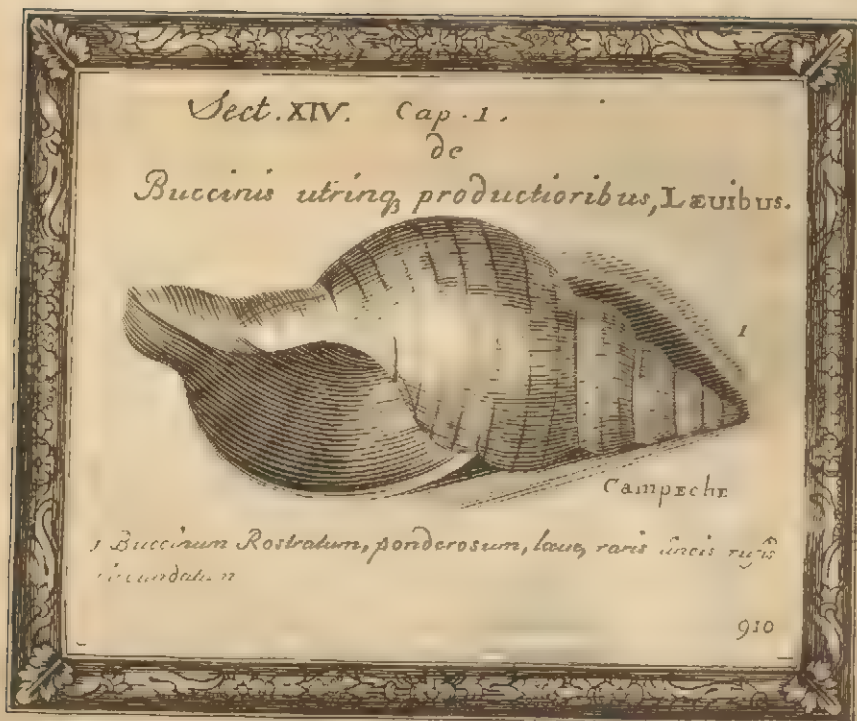 Sect. XIV. Cap. 1.
de
Buccinis utrinqꝫ productioribus, Læuibus.
1
Campeche
1 Buccinum Rostratum, ponderosum, læue, raris lineis rufis
circundatum
910